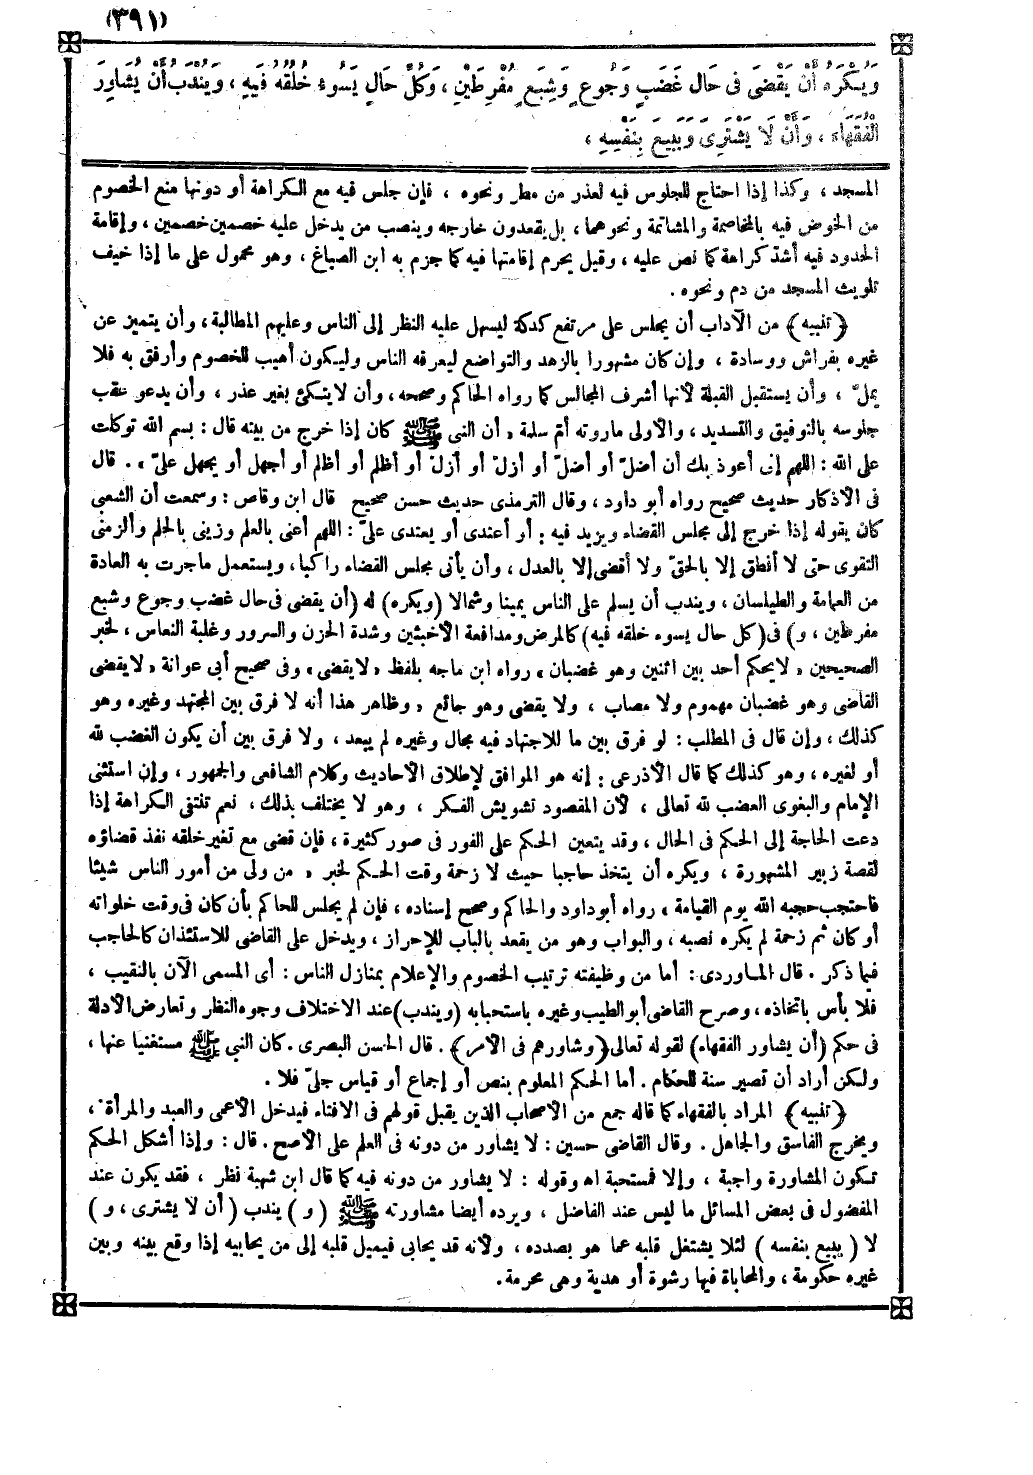 (٣٩١)
وَيُكْرَهُ أَنْ يَقْضِىَ فِى حَالِ غَضَبٍ وَجُوعٍ وَشِبَعٍ مُفْرِطَيْنِ ، وَكُلِّ حَالٍ يَسُوءُ خُلُقُهُ فِيهِ ، وَيُنْدَبُ أَنْ يُشَاوِرَ
الْفُقَهَاءَ ، وَأَنْ لَا يَشْتَرِىَ وَيَبِيعَ بِنَفْسِهِ ،
المسجد ، وكذا إذا احتاج للجلوس فيه لعذر من مطر ونحوه ، فإن جلس فيه مع الكراهة أو دونها منع الخصوم
من الخوض فيه بالمخاصمة والمشاتمة ونحوهما ، بل يقعدون خارجه وينصب من يدخل عليه خصمين خصمين ، وإقامة
الحدود فيه أشد كراهة كما نص عليه ، وقيل يحرم إقامتها فيه كما جزم به ابن الصباغ ، وهو محمول على ما إذا خيف
تلويث المسجد من دم ونحوه .
﴿تنبيه﴾ من الآداب أن يجلس على مرتفع كدكة ليسهل عليه النظر إلى الناس وعليهم المطالبة ، وأن يتميز عن
غيره بفراش ووسادة ، وإن كان مشهورا بالزهد والتواضع ليعرفه الناس وليكون أهيب للخصوم وأرفق به فلا
يملّ ، وأن يستقبل القبلة لأنها أشرف المجالس كما رواه الحاكم وصححه ، وأن لا يتكئ بغير عذر ، وأن يدعو عقب
جلوسه بالتوفيق والتسديد ، والأولى ما روته أمّ سلمة « أن النبى ﷺ كان إذا خرج من بيته قال : بسم الله توكلت
على الله : اللهم إنى أعوذ بك أن أضلّ أو أضلّ أو أزلّ أو أزلّ أو أظلم أو أظلم أو أجهل أو يجهل علىّ » . قال
فى الأذكار حديث صحيح رواه أبو داود ، وقال الترمذى حديث حسن صحيح قال ابن وقاص : وسمعت أن الشعبى
كان يقوله إذا خرج إلى مجلس القضاء ويزيد فيه : أو أعتدى أو يعتدى علىّ : اللهم أعنى بالعلم وزينى بالحلم وألزمنى
التقوى حتى لا أنطق إلا بالحقّ ولا أقضى إلا بالعدل ، وأن يأتى مجلس القضاء راكبا ، ويستعمل ماجرت به العادة
من العمامة والطيلسان ، ويندب أن يسلم على الناس يمينا وشمالا (ويكره) له (أن يقضى فى حال غضب وجوع وشبع
مفرطين ، و) فى (كل حال يسوء خلقه فيه) كالمرض ومدافعة الأخبثين وشدة الحزن والسرور وغلبة النعاس ، لخبر
الصحيحين « لا يحكم أحد بين اثنين وهو غضبان » رواه ابن ماجه بلفظ « لا يقضى » وفى صحيح أبى عوانة « لا يقضى
القاضى وهو غضبان مهموم ولا مصاب ، ولا يقضى وهو جائع » وظاهر هذا أنه لا فرق بين المجتهد وغيره وهو
كذلك ، وإن قال فى المطلب : لو فرق بين ما للاجتهاد فيه مجال وغيره لم يبعد ، ولا فرق بين أن يكون الغضب لله
أو لغيره ، وهو كذلك كما قال الأذرعى : إنه هو الموافق لإطلاق الأحاديث وكلام الشافعى والجمهور ، وإن استثنى
الإمام والبغوى الغضب لله تعالى ، لأن المقصود تشويش الفكر ، وهو لا يختلف بذلك ، نعم تنتفى الكراهة إذا
دعت الحاجة إلى الحكم فى الحال ، وقد يتعين الحكم على الفور فى صور كثيرة ، فإن قضى مع تغير خلقه نفذ قضاؤه
لقصة زبير المشهورة ، ويكره أن يتخذ حاجبا حيث لا زحمة وقت الحكم لخبر « من ولى من أمور الناس شيئا
فاحتجب حجبه الله يوم القيامة » رواه أبو داود والحاكم وصحح إسناده ، فإن لم يجلس للحاكم بأن كان فى وقت خلواته
أو كان ثم زحمة لم يكره نصبه ، والبواب وهو من يقعد بالباب للإحراز ، ويدخل على القاضى للاستئذان كالحاجب
فيما ذكر . قال الماوردى : أما من وظيفته ترتيب الخصوم والإعلام بمنازل الناس : أى المسمى الآن بالنقيب ،
فلا بأس باتخاذه ، وصرح القاضى أبو الطيب وغيره باستحبابه (ويندب) عند الاختلاف وجوه النظر وتعارض الأدلة
فى حكم (أن يشاور الفقهاء) لقوله تعالى ﴿وشاورهم فى الأمر﴾ . قال الحسن البصرى . كان النبى ﷺ مستغنيا عنها ،
ولكن أراد أن تصير سنة للحكام . أما الحكم المعلوم بنص أو إجماع أو قياس جلىّ فلا .
﴿تنبيه﴾ المراد بالفقهاء كما قاله جمع من الأصحاب الذين يقبل قولهم فى الإفتاء فيدخل الأعمى والعبد والمرأة ،
ويخرج الفاسق والجاهل . وقال القاضى حسين : لا يشاور من دونه فى العلم على الأصح . قال : وإذا أشكل الحكم
تكون المشاورة واجبة ، وإلا فمستحبة اه وقوله : لا يشاور من دونه فيه كما قال ابن شهبة نظر ، فقد يكون عند
المفضول فى بعض المسائل ما ليس عند الفاضل ، ويرده أيضا مشاورته ﷺ ( و ) يندب ( أن لا يشترى ، و )
لا ( يبيع بنفسه ) لئلا يشتغل قلبه عما هو بصدده ، ولأنه قد يحابى فيميل قلبه إلى من يحابيه إذا وقع بينه وبين
غيره حكومة ، والمحاباة فيها رشوة أو هدية وهى محرمة .